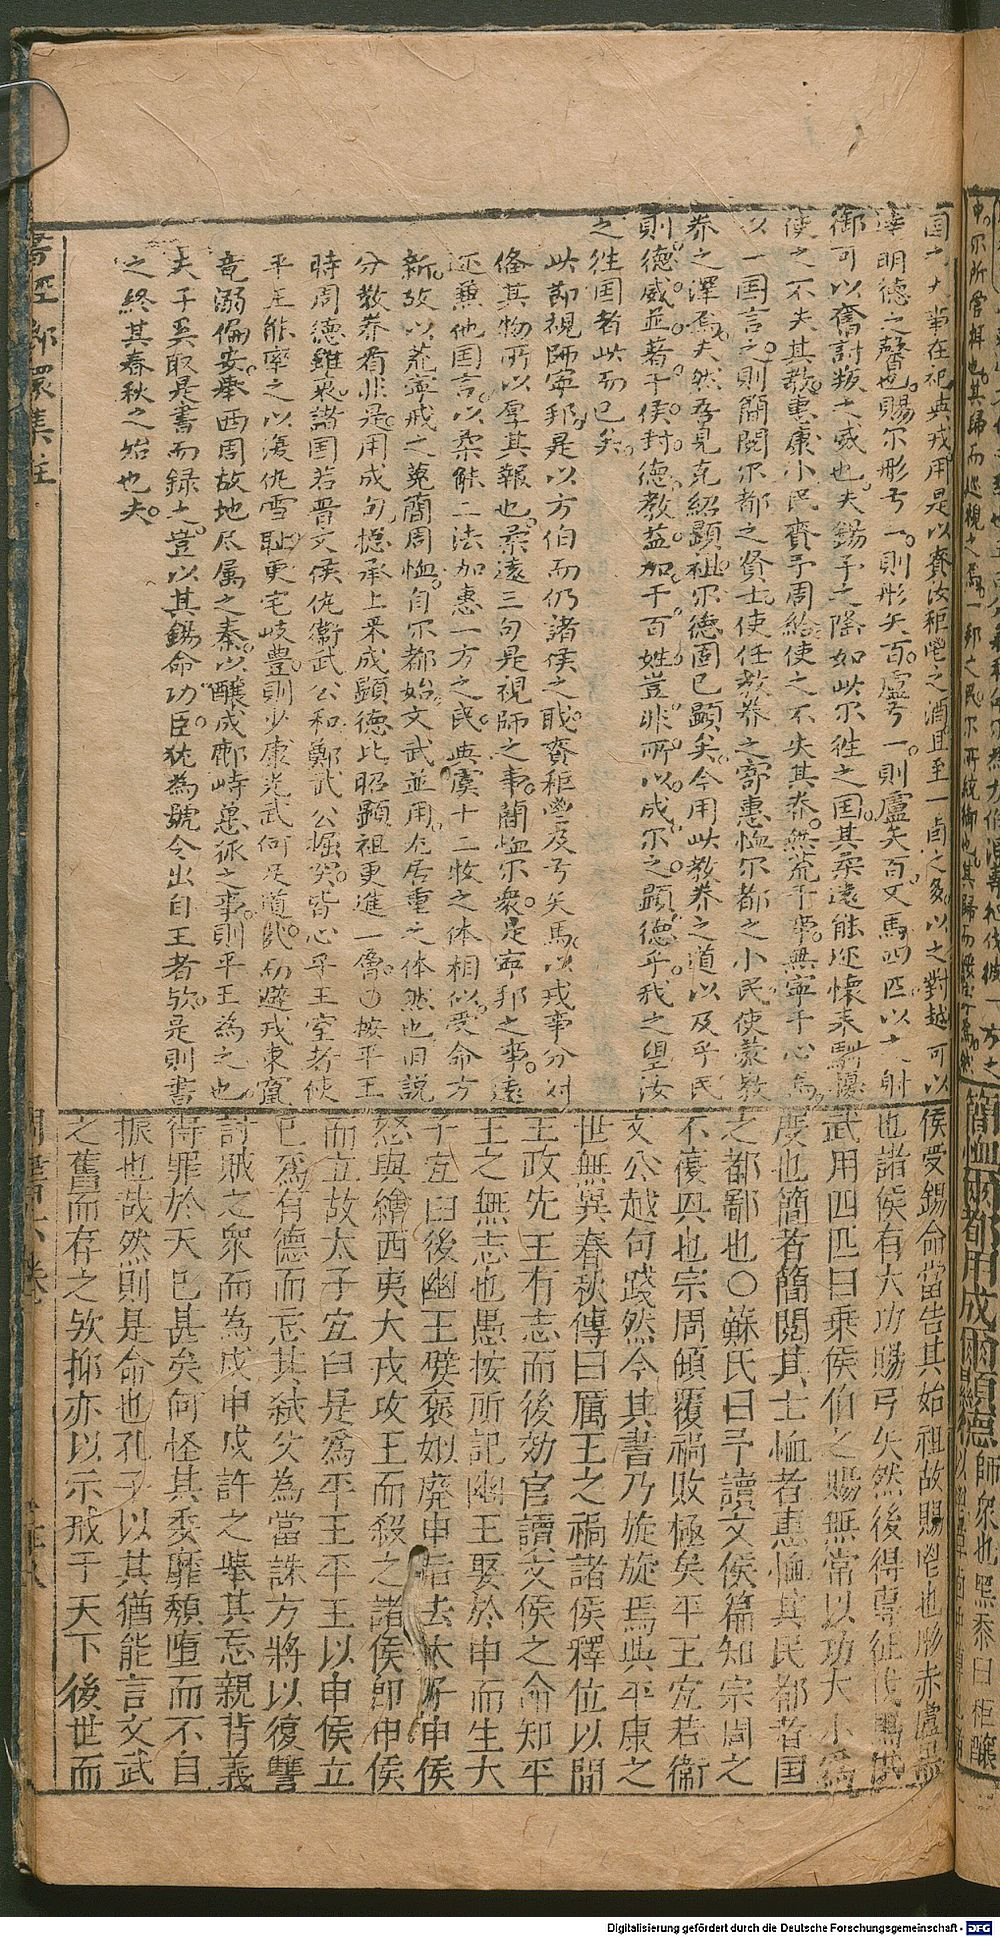 国之大事在祀與戎用是以賚汝秬鬯之酒且至一卣之多以之對越可以
達明德之馨也賜尔彤弓一則彤矢百盧弓一則盧矢百又馬四匹以之射
御可以奮討叛之威也夫錫予之隆如此尔徃之国其柔遠能迩懷来馴擾
使之不失其教惠康小民賚予周給使之不失其养無荒于事無寧于心焉
以一国言之則簡閱尔都之賢士使任教养之寄惠恤尔都之小民使蒙教
养之澤焉夫然吾見克紹顕祖尔德固已顕矣今用此教养之道以及乎民
則德威並著于侯封德教益加于百姓豈非所以成尔之顕德乎我之望汝
之徃国者此而已矣
此節視師寧邦是以方伯而仍諸侯之職賚秬鬯及弓矢馬以戎事分対
俻其物所以厚其報也柔遠三句是視師之事簡恤尔衆是寧邦之事遠
还兼他国言以柔能二法加惠一方之民與虞十二牧之体相似受命方
新故以荒寧戒之蒐簡周恤自尔都始文武並用尤居重之体然也旧説
分教养看非是用成句揔承上来成顕德比昭顕祖更進一層○按平王
時周德雖衰諸国若晋文侯仇衛武公和鄭武公掘突皆心乎王室者使
平王能率之以復仇雪耻更宅岐豊則少康光武何足道哉乃避戎東竄
竟溺偏安舉西周故地尽属之秦以釀成鄜畤之事則平王為之也
夫子奚取是書而録之豈以其錫命功臣犹為號令出自王者欤是則書
之終其春秋之始也夫
侯受錫命當告其始祖故賜鬯也彤赤盧黒
也諸侯有大功賜弓矢然後得專征伐馬供
武用四匹曰乗侯伯之賜無常以功大小爲
度也簡者簡閱其士恤者惠恤其民都者国
之都鄙也○蘇氏曰予讀文侯篇知宗周之
不復興也宗周傾覆禍敗極矣平王宜若衛
文公越句踐然今其書乃旋旋焉與平康之
世無異春秋傳曰厲王之禍諸侯釋位以間
王政先王有志而後効官讀文侯之命知平
王之無志也愚按所記幽王娶於申而生大
子宜臼後幽王嬖褒姒廢申后去太子申侯
怒與繒西夷犬戎攻王而殺之諸侯即申侯
而立故太子宜臼是爲平王平王以申侯立
已爲有德而忘其弑父為當誅方將以復讐
討賊之衆而為戍申戍許之舉其忘親背義
得罪於天已甚矣何怪其委靡頹墮而不自
振也哉然則是命也孔子以其猶能言文武
之舊而存之欤抑亦以示戒于天下後世而
書經郎環集註
簡恤爾都用成爾顯德
Digitalisierung gefördert durch die Deutsche Forschungsgemeinschaft - DFG